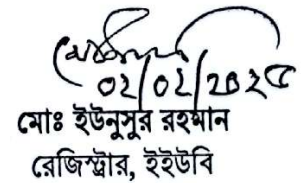 ০২/০২/২০২৫
মোঃ ইউনুসুর রহমান
রেজিস্ট্রার, ইইউবি